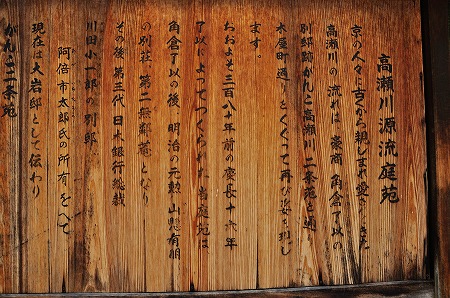 高瀬川源流庭苑
京の人々に古くから親しまれ愛されてきた
高瀬川の流れは、豪商 角倉了以の
別邸跡がんこ高瀬川二条苑と通
木屋町通りをくぐって再び姿を現し
ます。
おおよそ三百八十年前の慶長十六年
了以によってつくられた当庭苑は
角倉了以の後、明治の元勲 山縣有朋
の別荘 第二無鄰菴となり
その後 第三代 日本銀行総裁
川田小一郎の別邸
阿倍市太郎氏の所有をへて
現在は大岩邸として伝わり
がんこ二条苑